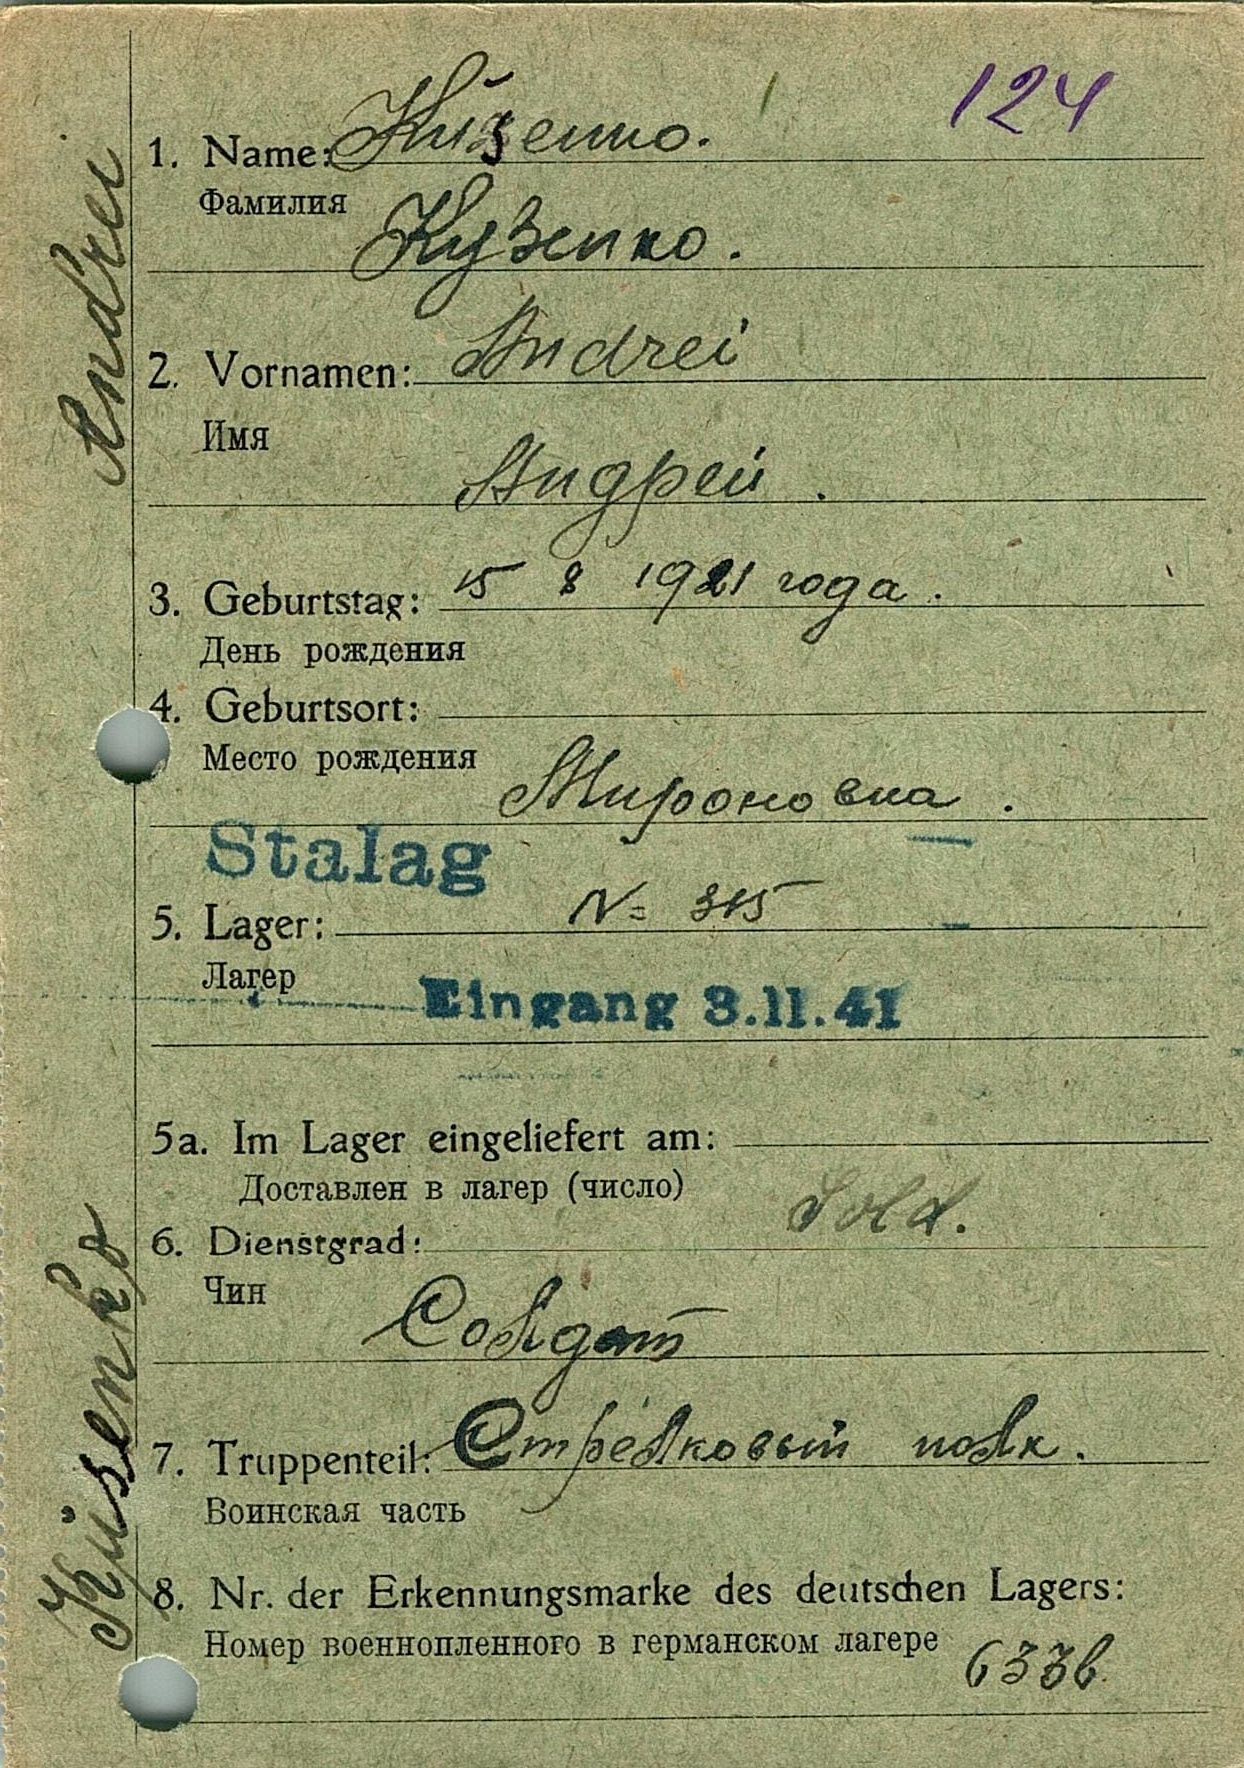 124
1. Name: Kusenko.
Фамилия
Кузенко.
2. Vornamen: Andrei
Имя
Андрей.
3. Geburtstag: 15 8 1921 года.
День рождения
4. Geburtsort:
Место рождения
Мироновка.
Stalag
5. Lager: № 315
Лагер
Eingang 3.11.41
5a. Im Lager eingeliefert am:
Доставлен в лагер (число)
Sold.
6. Dienstgrad:
Чин
Солдат
7. Truppenteil: Стрелковый полк.
Воинская часть
8. Nr. der Erkennungsmarke des deutschen Lagers:
Номер военнопленного в германском лагере 6336
Küsenko Andrei